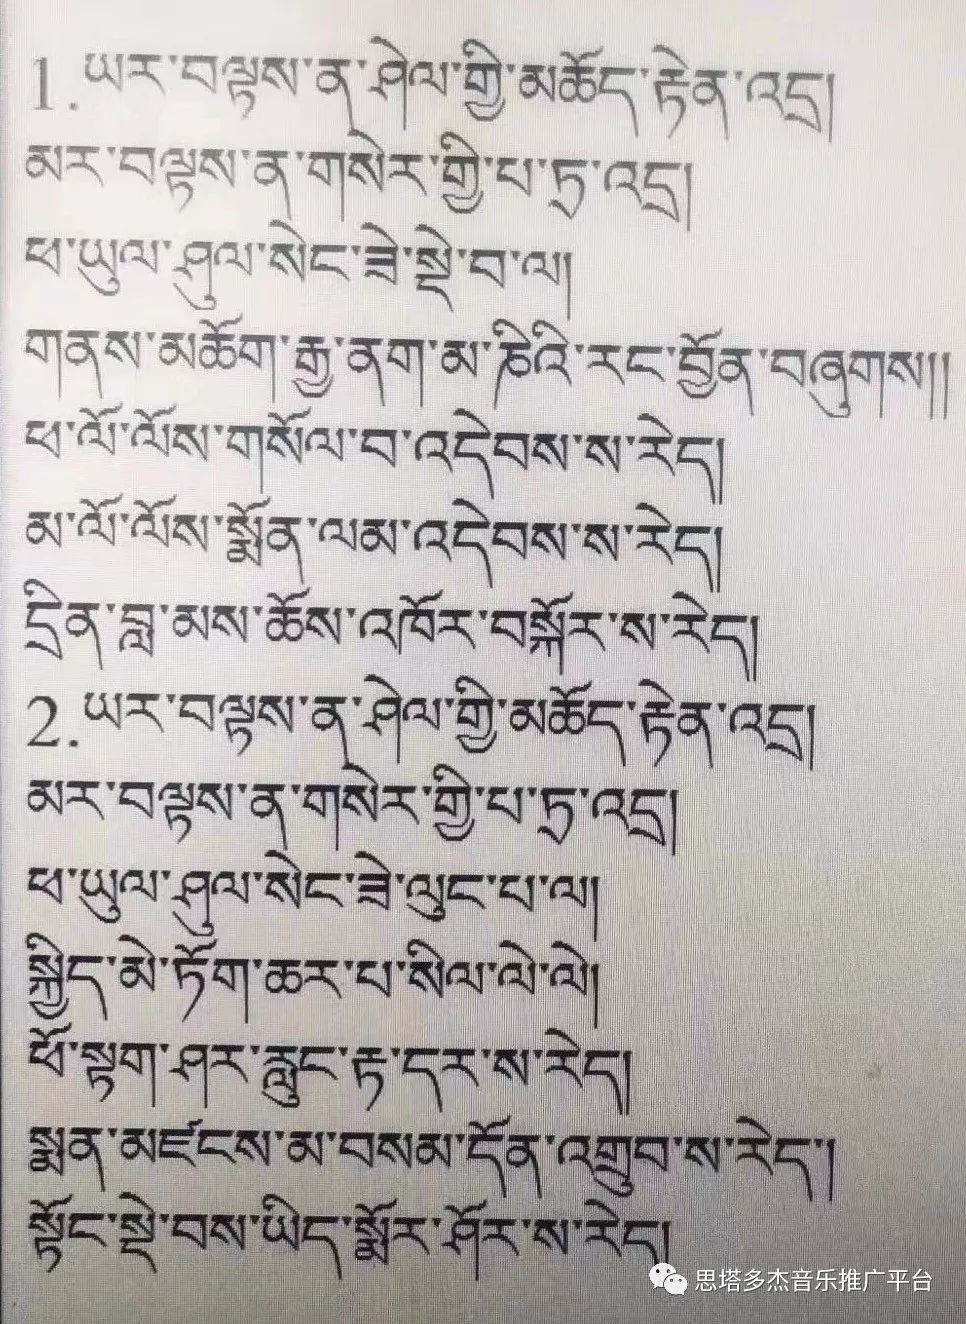 1.ཡར་བལྟས་ན་ཤེལ་གྱི་མཆོད་རྟེན་འདྲ།
མར་བལྟས་ན་གསེར་གྱི་པ་ཏྲ་འདྲ།
ཕ་ཡུལ་ཤུལ་སེང་ཟེ་སྡེ་བ་ལ།
གནས་མཆོག་རྒྱ་ནག་མ་ཎིའི་རང་བྱོན་བཞུགས།།
ཕ་ལོ་ལོས་གསོལ་བ་འདེབས་ས་རེད།
མ་ལོ་ལོས་སྨོན་ལམ་འདེབས་ས་རེད།
དྲིན་བླ་མས་ཆོས་འཁོར་བསྐོར་ས་རེད།
2.ཡར་བལྟས་ན་ཤེལ་གྱི་མཆོད་རྟེན་འདྲ།
མར་བལྟས་ན་གསེར་གྱི་པ་ཏྲ་འདྲ།
ཕ་ཡུལ་ཤུལ་སེང་ཟེ་ལུང་པ་ལ།
སྐྱིད་མེ་ཏོག་ཆར་པ་སིལ་ལེ་ལེ།
ཕོ་སྟག་ཤར་རླུང་རྟ་དར་ས་རེད།
སྨན་མཛངས་མ་བསམ་དོན་འགྲུབ་ས་རེད་།
སྟོང་སྡེ་བས་ཡིད་སྨོར་ཤོར་ས་རེད།
思塔多杰音乐推广平台